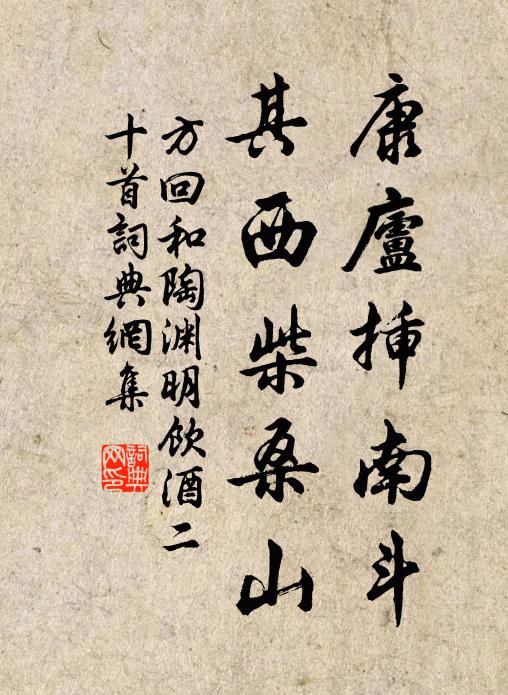 康廬插南斗
其西柴桑山
方回和陶渊明飲酒二
十首詞典網集
詞典
网印